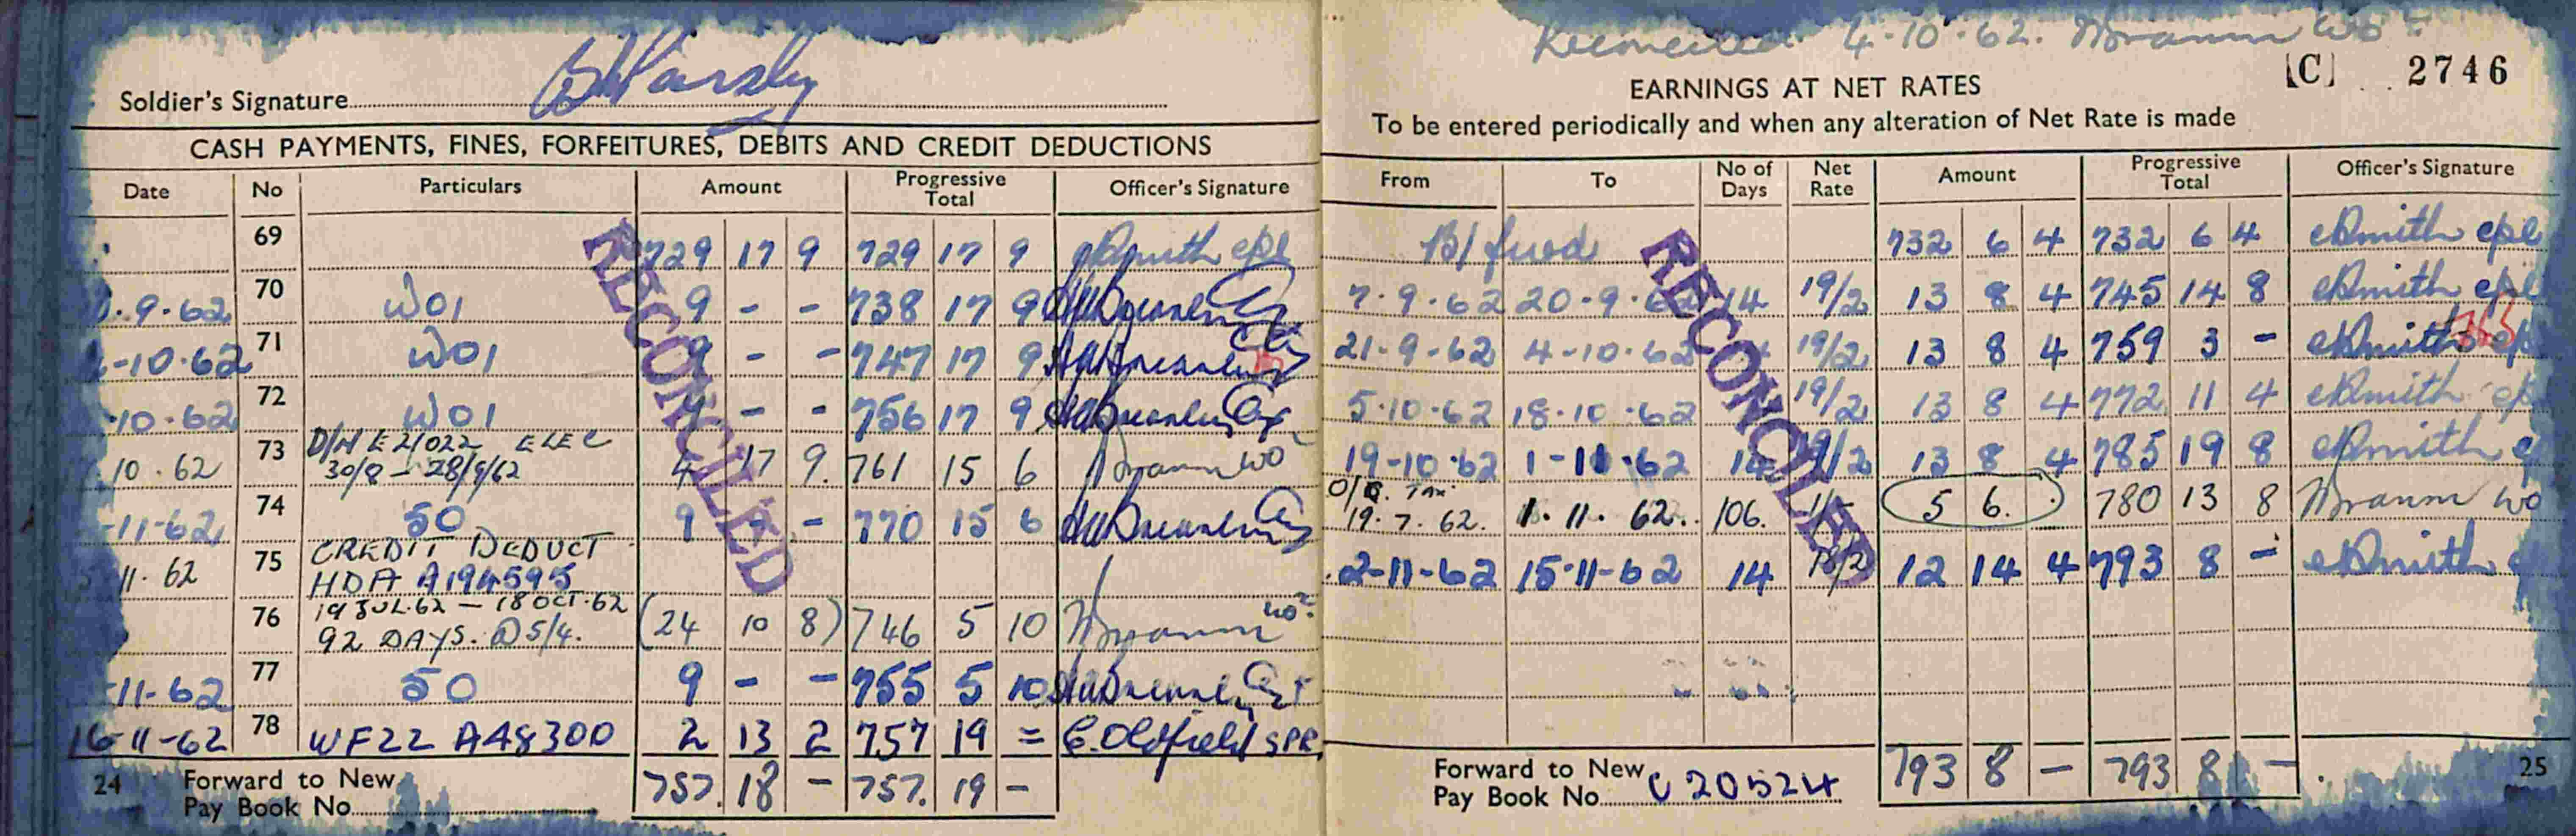 Soldier's Signature
CASH PAYMENTS, FINES, FORFEITURES, DEBITS AND CREDIT DEDUCTIONS
Date No Particulars Amount Progressive Total Officer's Signature
69 729 17 9 729 17 9 Smith cpl
.9.62 70 W01 9 - - 738 17 9
-10.62 71 W01 9 - - 747 17 9
-10.62 72 W01 9 - - 756 17 9
10.62 73 D/H E21022 ELEC 30/8 - 28/9/62 4 17 9. 761 15 6 WO
-11-62 74 50 9 - - 770 15 6
11.62 75 CREDIT DEDUCT HDA A194595
76 19 JUL.62 - 18 OCT.62 92 DAYS. @ 5/4. (24 10 8) 746 5 10 WO2
-11-62 77 50 9 - - 755 5 10
16-11-62 78 WF22 A48300 2 13 2 757 19 = C. Oldfield SPR
24 Forward to New Pay Book No 757. 18 - 757. 19 -
RECONCILED
Reconciled 4.10.62. WO2
[C] 2746
EARNINGS AT NET RATES
To be entered periodically and when any alteration of Net Rate is made
From To No of Days Net Rate Amount Progressive Total Officer's Signature
B/fwd 732 6 4 732 6 4 Smith cpl
7.9.62 20.9.62 14 19/2 13 8 4 745 14 8 Smith cpl
21-9-62 4-10.62 19/2 13 8 4 759 3 - Smith
5.10.62 18.10.62 19/2 13 8 4 772 11 4 Smith
19-10.62 1-11.62 14 19/2 13 8 4 785 19 8 Smith
19.7.62. 1.11.62. 106. 1/- 5 6. 780 13 8 WO
2-11-62 15-11-62 14 18/2 12 14 4 793 8 - Smith
793 8 - 793 8 -
Forward to New Pay Book No C 20524 25
RECONCILED